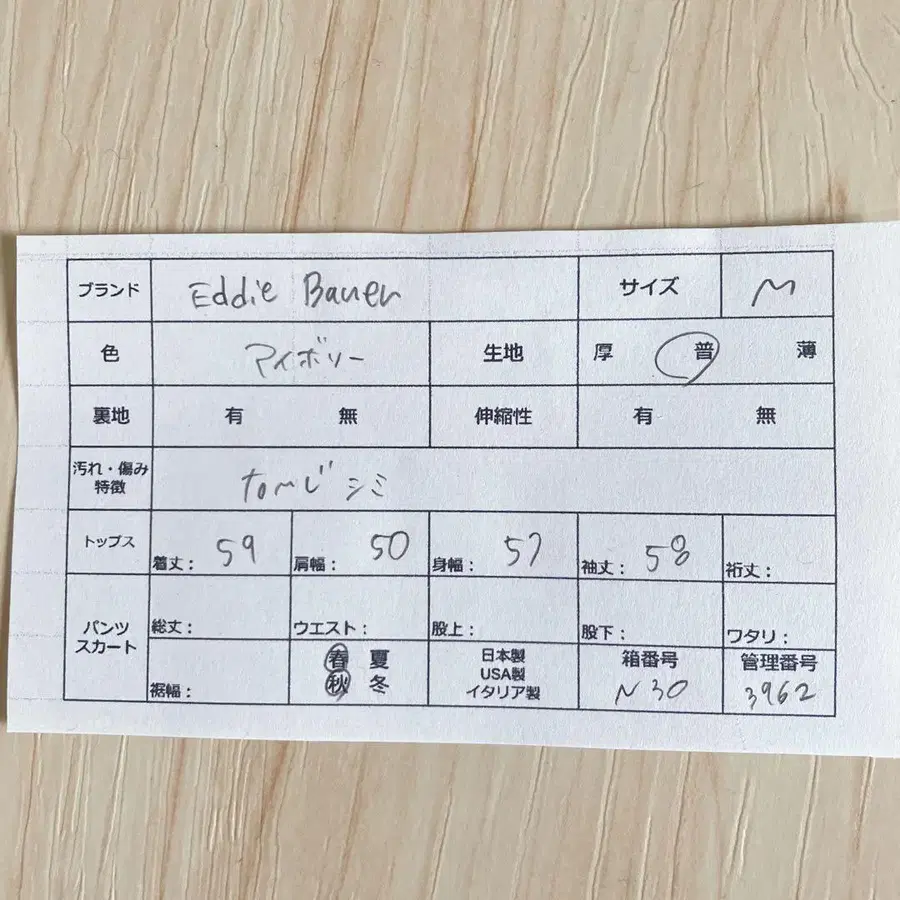 ブランド Eddie Bauer サイズ M
色 アイボリー 生地 厚 普 薄
裏地 有 無 伸縮性 有 無
汚れ・傷み
特徴 シミ
トップス 着丈： 59 肩幅： 50 身幅： 57 袖丈： 58 裄丈：
パンツ
スカート 総丈： ウエスト： 股上： 股下： ワタリ：
裾幅： 春 夏
秋 冬
日本製
USA製
イタリア製
箱番号
N30
管理番号
3962